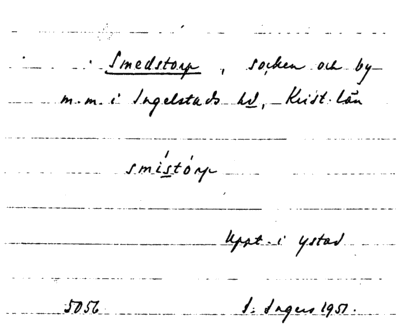 Smedstorp, socken och by
m.m. i Ingelstads hd, Krist. län
smístórp
Uppt. i Ystad
5056 I. Ingers 1951.